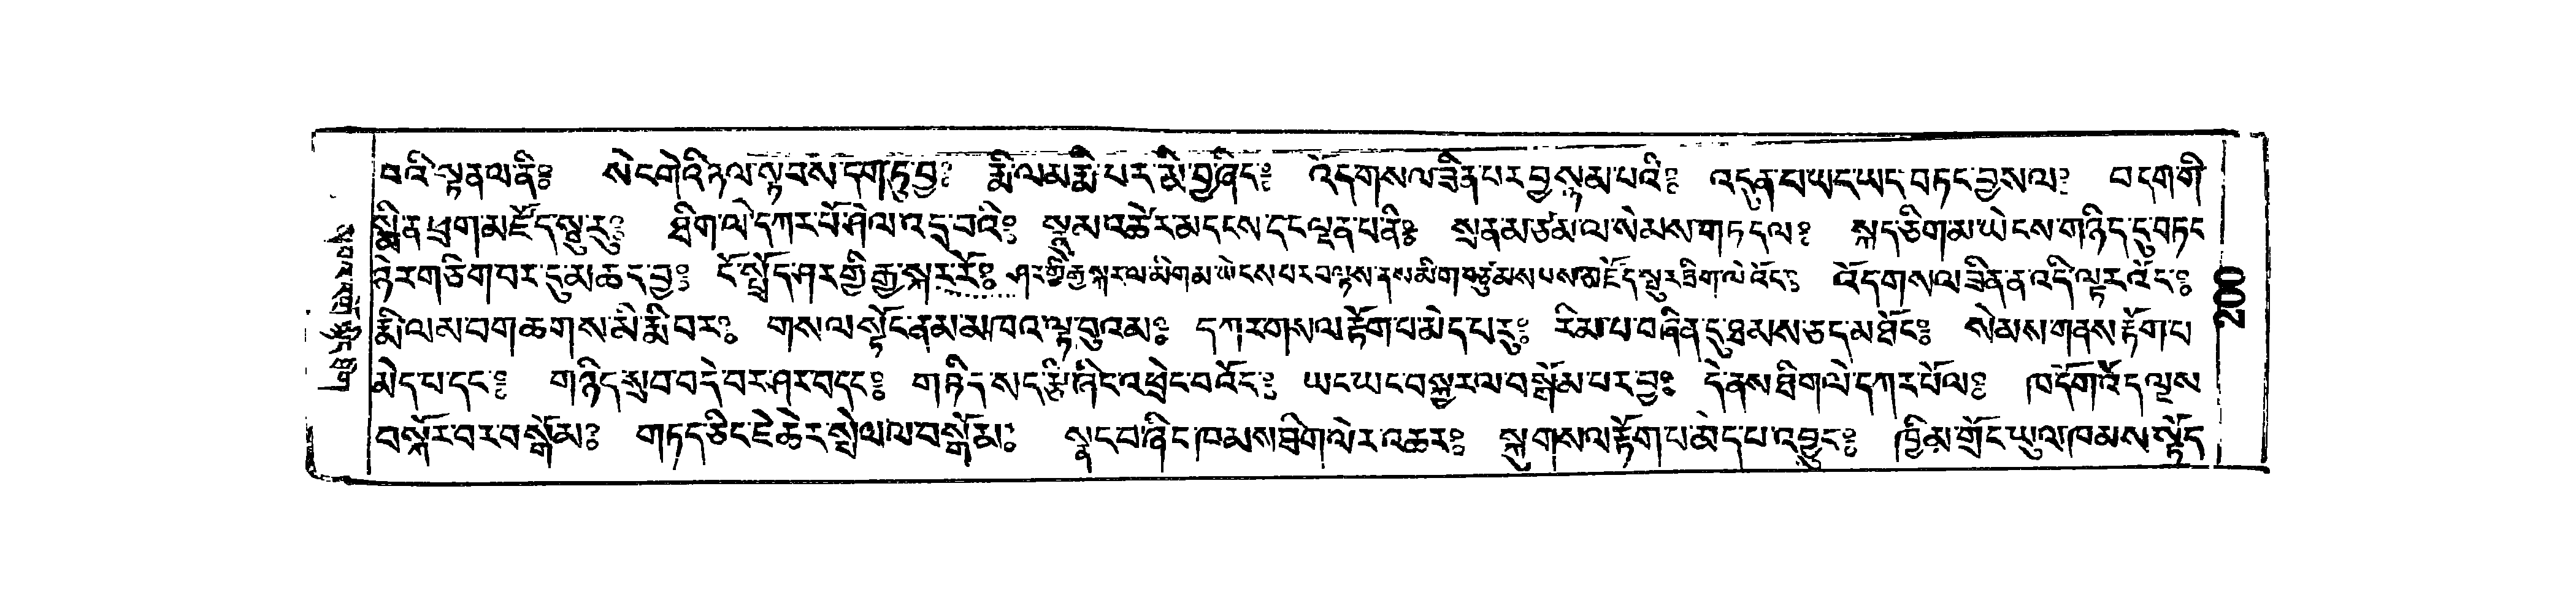 བའི་སྟན་ལ་ནི༔ སེང་གེའི་ཉལ་སྟབས་དག་ཏུ་བྱ༔ རྨི་ལམ་རྨི་བར་མི་བྱ་ཞིང༔ འོད་གསལ་ཟིན་པར་བྱ་སྙམ་པའི༔ འདུན་པ་ཡང་ཡང་བཏང་བྱས་ལ༔ བདག་གི
སྨིན་ཕྲག་མཛོད་སྤུ་རུ༔ ཐིག་ལེ་དཀར་པོ་ཤེལ་འདྲ་བའི༔ སྣུམ་འཚེར་མདངས་དང་ལྡན་པ་ནི༔ སྲན་མ་ཙམ་ལ་སེམས་གཏད་ལ༔ སྐད་ཅིག་མ་ཡེངས་གཉིད་དུ་བཏང
ཉེར་གཅིག་བར་དུ་མ་ཆད་བྱ༔ ངོ་སྤྲོད་ཤར་གྱི་རྒྱ་སྐར་རོ༔ ཤར་གྱི་རྒྱ་སྐར་ལ་མིག་མ་ཡེངས་པར་བལྟས་ནས་མིག་བཙུམས་པས་མཛོད་སྤུར་ཐིག་ལེ་འོང༔ འོད་གསལ་ཟིན་ན་འདི་ལྟར་འོང༔
རྨི་ལམ་བག་ཆགས་མི་རྨི་བར༔ གསལ་སྟོང་ནམ་མཁའ་ལྟ་བུའམ༔ དཀར་གསལ་རྟོག་པ་མེད་པ་རུ༔ རིམ་པ་བཞིན་དུ་ཐམས་ཅད་མཐོང༔ སེམས་གནས་རྟོག་པ
མེད་པ་དང༔ གཉིད་སྲབ་བདེ་བར་ཤར་བ་དང༔ གཏིད་སད་རྨི་ཞིང་འཕྲེང་བ་འོང༔ ཡང་ཡང་བསྐྱར་ལ་བསྒོམ་པར་བྱ༔ དེ་ནས་ཐིག་ལེ་དཀར་པོ་ལ༔ ཁ་དོག་འོད་ལྔས
བསྐོར་བར་བསྒོམ༔ གཏད་ཅིང་ཇེ་ཆེར་སྤེལ་ལ་བསྒོམ༔ སྣང་བ་ཞིང་ཁམས་ཐིག་ལེར་འཆར༔ སྐུ་གསལ་རྟོག་པ་མེད་པ་འབྱུང༔ ཁྱིམ་གྲོང་ཡུལ་ཁམས་སྟོད